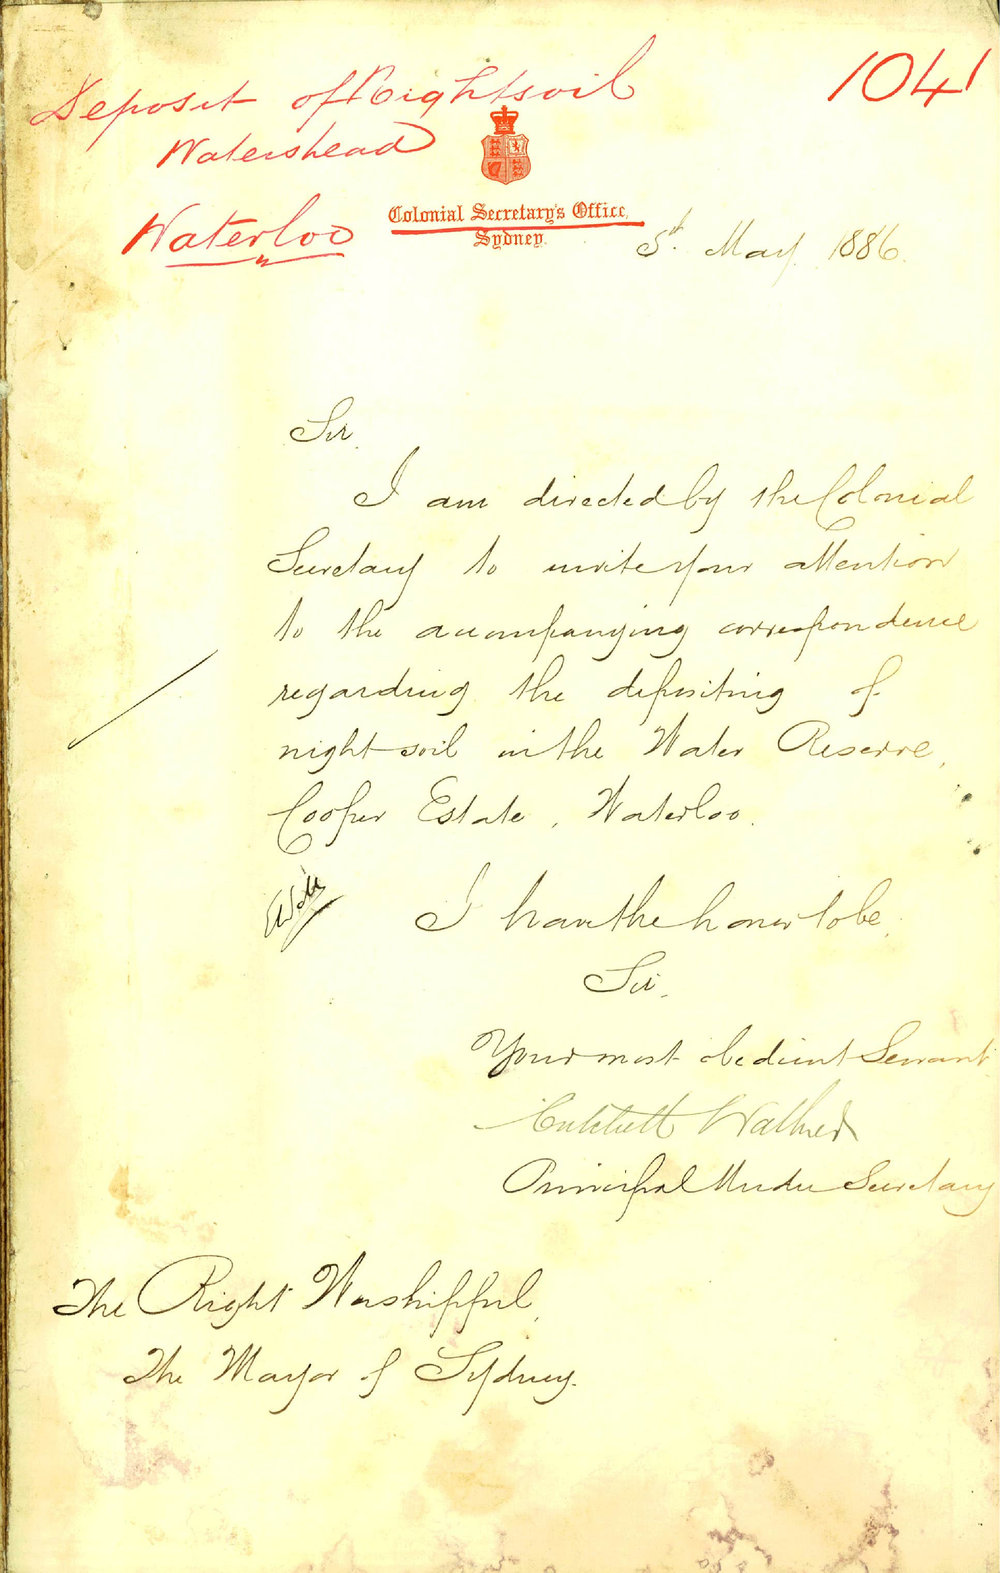 1041
Deposit of Nightsoil
Watershead
Waterloo
Colonial Secretary's Office,
Sydney.
5th May 1886.
Sir,
I am directed by the Colonial
Secretary to invite your attention
to the accompanying correspondence
regarding the depositing of
night-soil in the Water Reserve,
Cooper Estate, Waterloo.
I have the honor to be,
Sir,
Your most obedient Servant
Critchett Walker
Principal Under Secretary
The Right Worshipful,
The Mayor of Sydney.